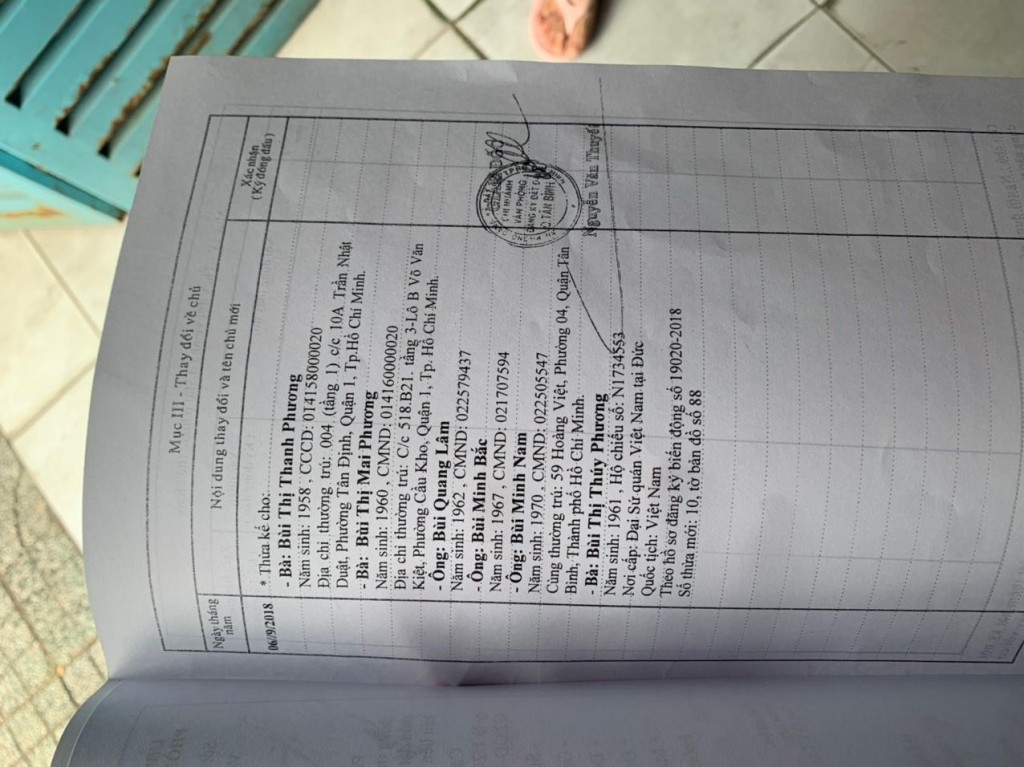 Mục III - Thay đổi về chủ
Ngày tháng năm
Nội dung thay đổi và tên chủ mới
Xác nhận
(Ký đóng dấu)
06/9/2018
* Thừa kế cho:
- Bà: Bùi Thị Thanh Phương
Năm sinh: 1958 , CCCD: 014158000020
Địa chỉ thường trú: 004 (tầng 1) c/c 10A Trần Nhật
Duật, Phường Tân Định, Quận 1, Tp.Hồ Chí Minh.
- Bà: Bùi Thị Mai Phương
Năm sinh: 1960 , CMND: 014160000020
Địa chỉ thường trú: C/c 518.B21, tầng 3-Lô B Võ Văn
Kiệt, Phường Cầu Kho, Quận 1, Tp. Hồ Chí Minh.
- Ông: Bùi Quang Lâm
Năm sinh: 1962 , CMND: 022579437
- Ông: Bùi Minh Bắc
Năm sinh: 1967 , CMND: 021707594
- Ông: Bùi Minh Nam
Năm sinh: 1970 , CMND: 022505547
Cùng thường trú: 59 Hoàng Việt, Phường 04, Quận Tân
Bình, Thành phố Hồ Chí Minh.
- Bà: Bùi Thị Thúy Phương
Năm sinh: 1961 , Hộ chiếu số: N1734553
Nơi cấp: Đại Sứ quán Việt Nam tại Đức
Quốc tịch: Việt Nam
Theo hồ sơ đăng ký biến động số 19020-2018
Số thửa mới: 10, tờ bản đồ số 88
CHI NHÁNH
VĂN PHÒNG
ĐĂNG KÝ ĐẤT Đ
TÂN BÌNH
Nguyễn Văn Thuyết